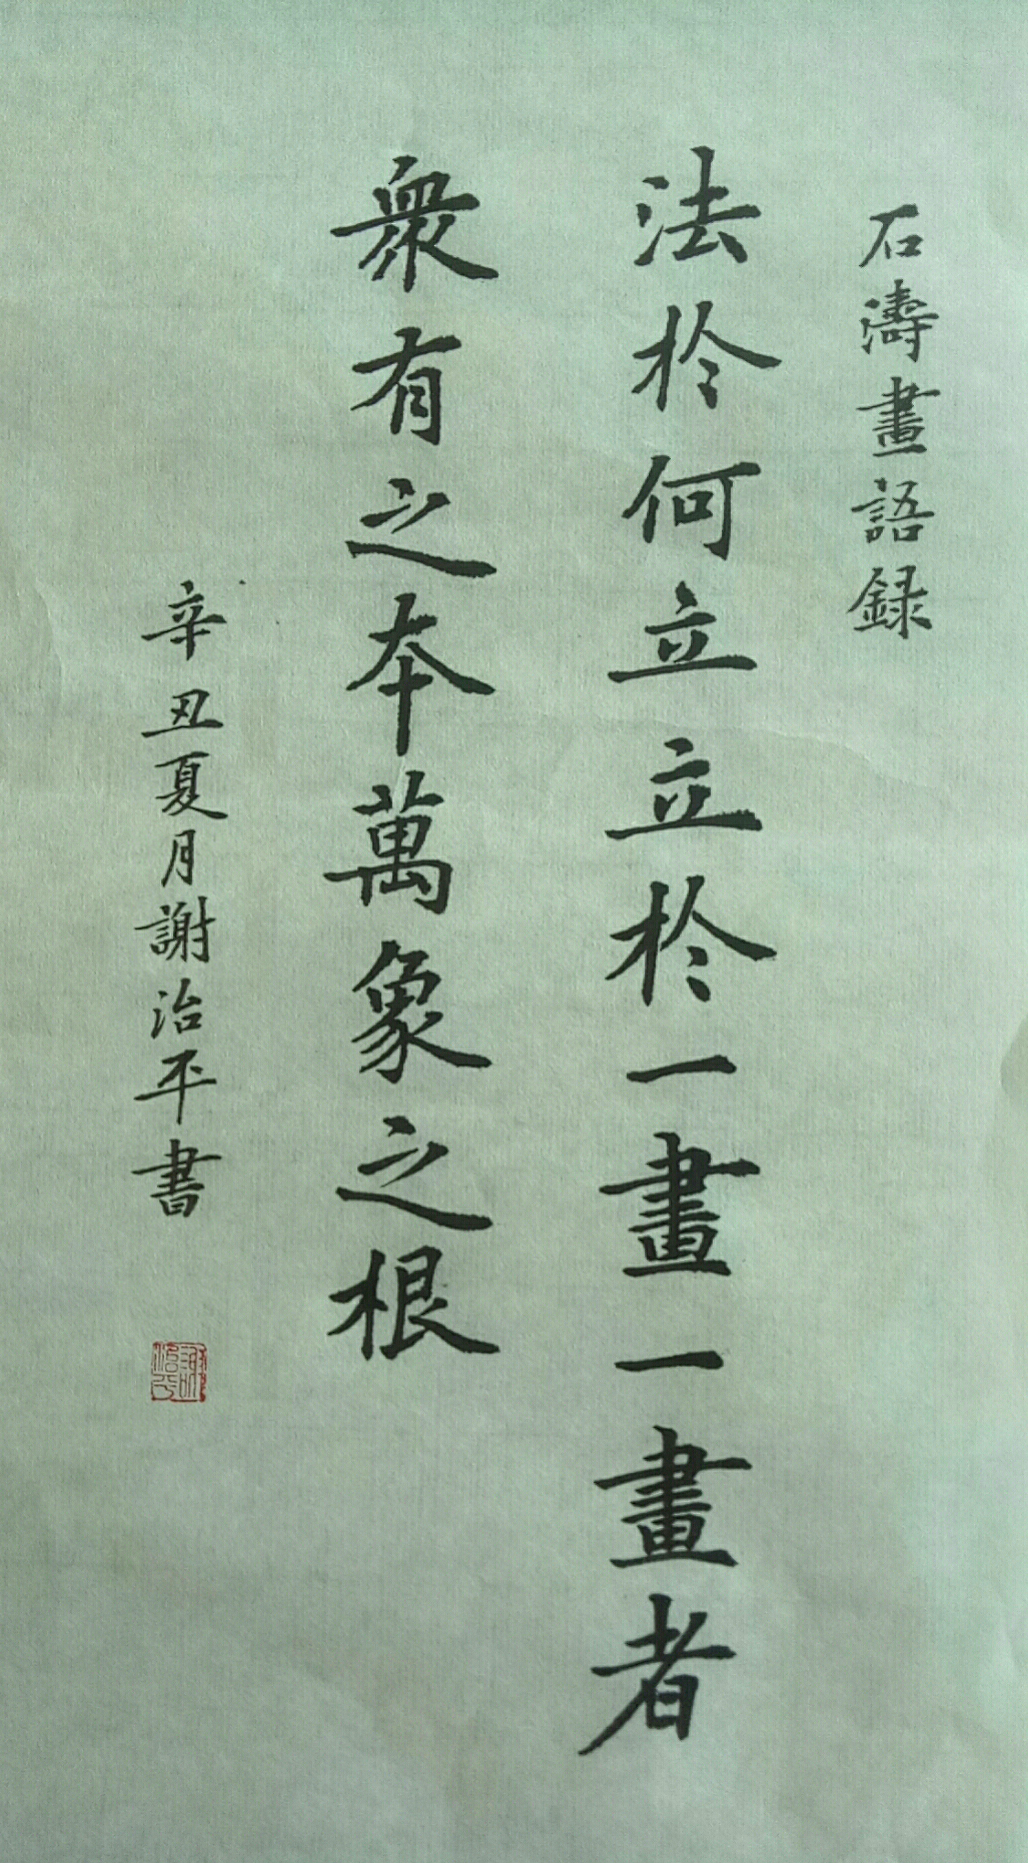 石濤畫語録
法於何立立於一畫一畫者
衆有之本萬象之根
辛丑夏月謝治平書